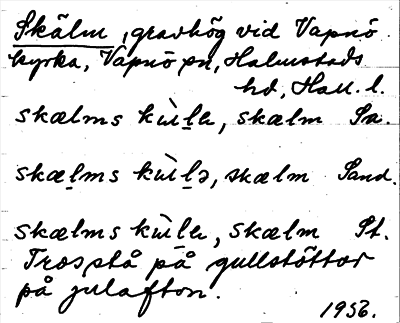 Skälm, gravhög vid Vapnö
kyrka, Vapnö sn, Halmstads
hd, Hall. l.
skælms kùl̠a, skælm Sa.
skæl̠ms kùl̠ə, skælm Sand.
skælms kùl̠a, skælm St.
Tros stå på gullstöttor
på julafton.
1956.